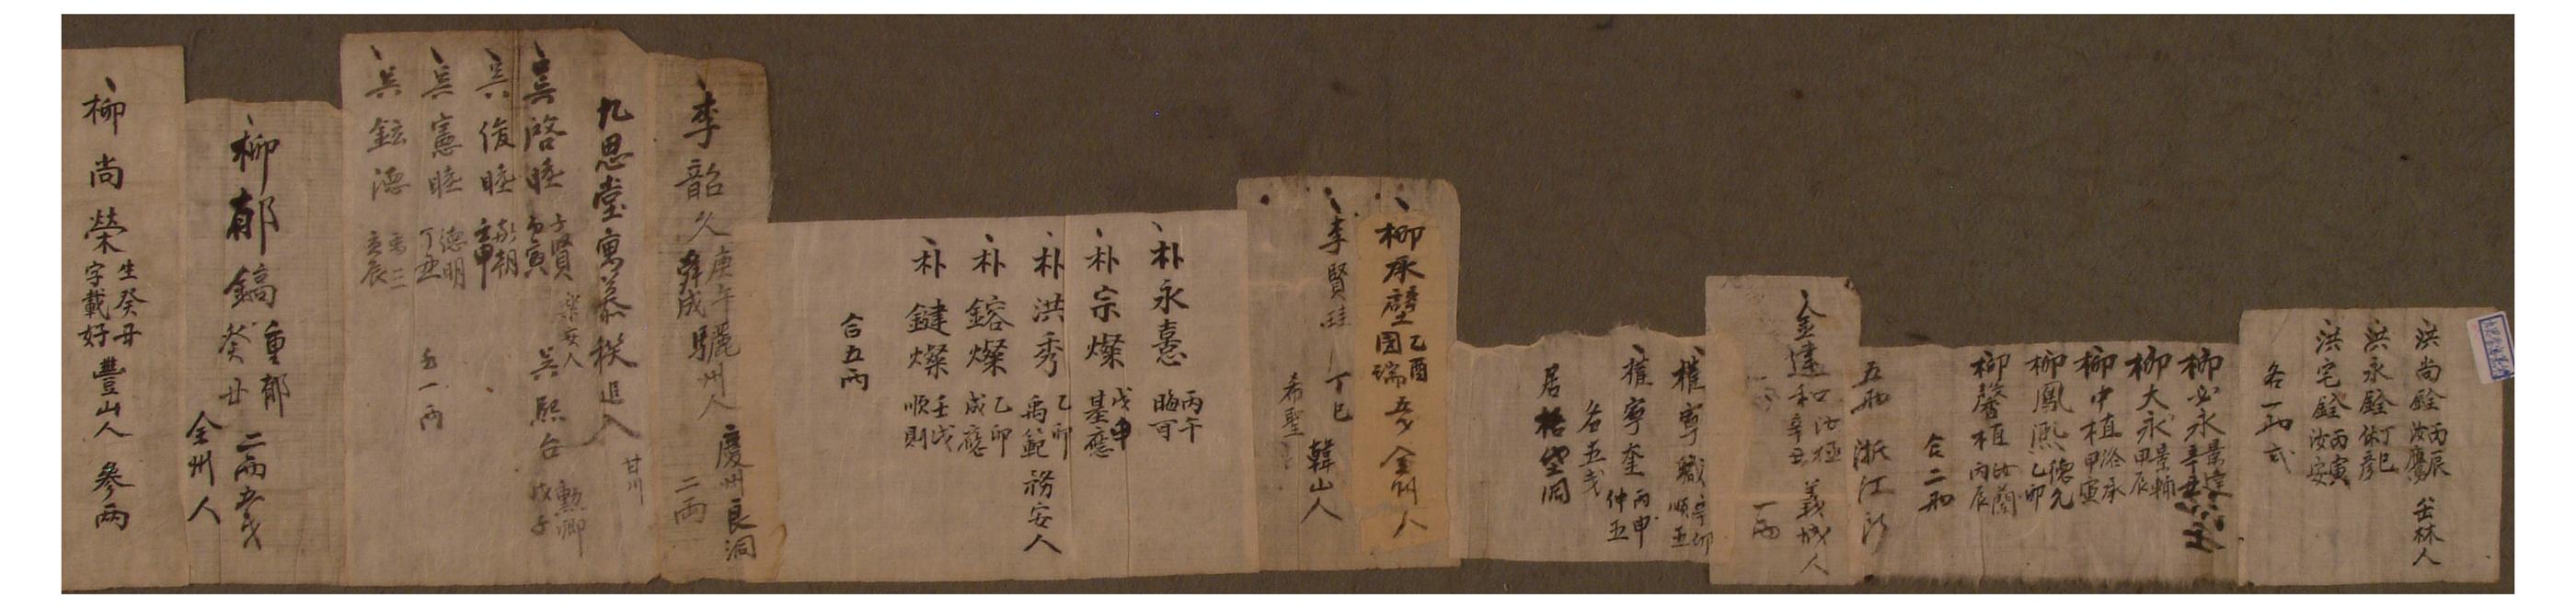 洪尚銓 丙辰 汝鷹 缶林人
洪永銓 丁巳 休彦
洪宅銓 丙寅 汝安
各一兩式
柳必永 景達
柳大永 景輔 甲辰
柳中植 洛承 甲寅
柳鳳熙 德允 乙卯
柳馨植 汝蘭 丙辰
合二兩
五兩 浙江派
金達和 汝極 辛丑 義城人
一兩
權寧職 辛卯 順五
權寧奎 丙申 仲五
各五戔
居 洞
柳承璧 乙酉 圭瑞 全州人
李賢珪 丁巳 希聖 韓山人
朴永憙 丙午 晦可
朴宗燦 戊申 基應
朴洪秀 乙卯 禹範 務安人
朴鎔燦 乙卯 成應
朴鍵燦 壬戌 順則
合五兩
李韶久 庚午 舜成 驪州人 慶州良洞
二兩
九思堂寓慕稧追入 甘川
吳啓睦 子賢 庚寅 樂安人 吳熙台 勳卿 戊子
吳俊睦 敬朝
吳憲睦 德明 丁丑 一兩
吳鉉德
柳郁鎬 重郁 癸丑 二兩五戔
全州人
柳尚榮 生癸丑 字載好 豐山人 參兩